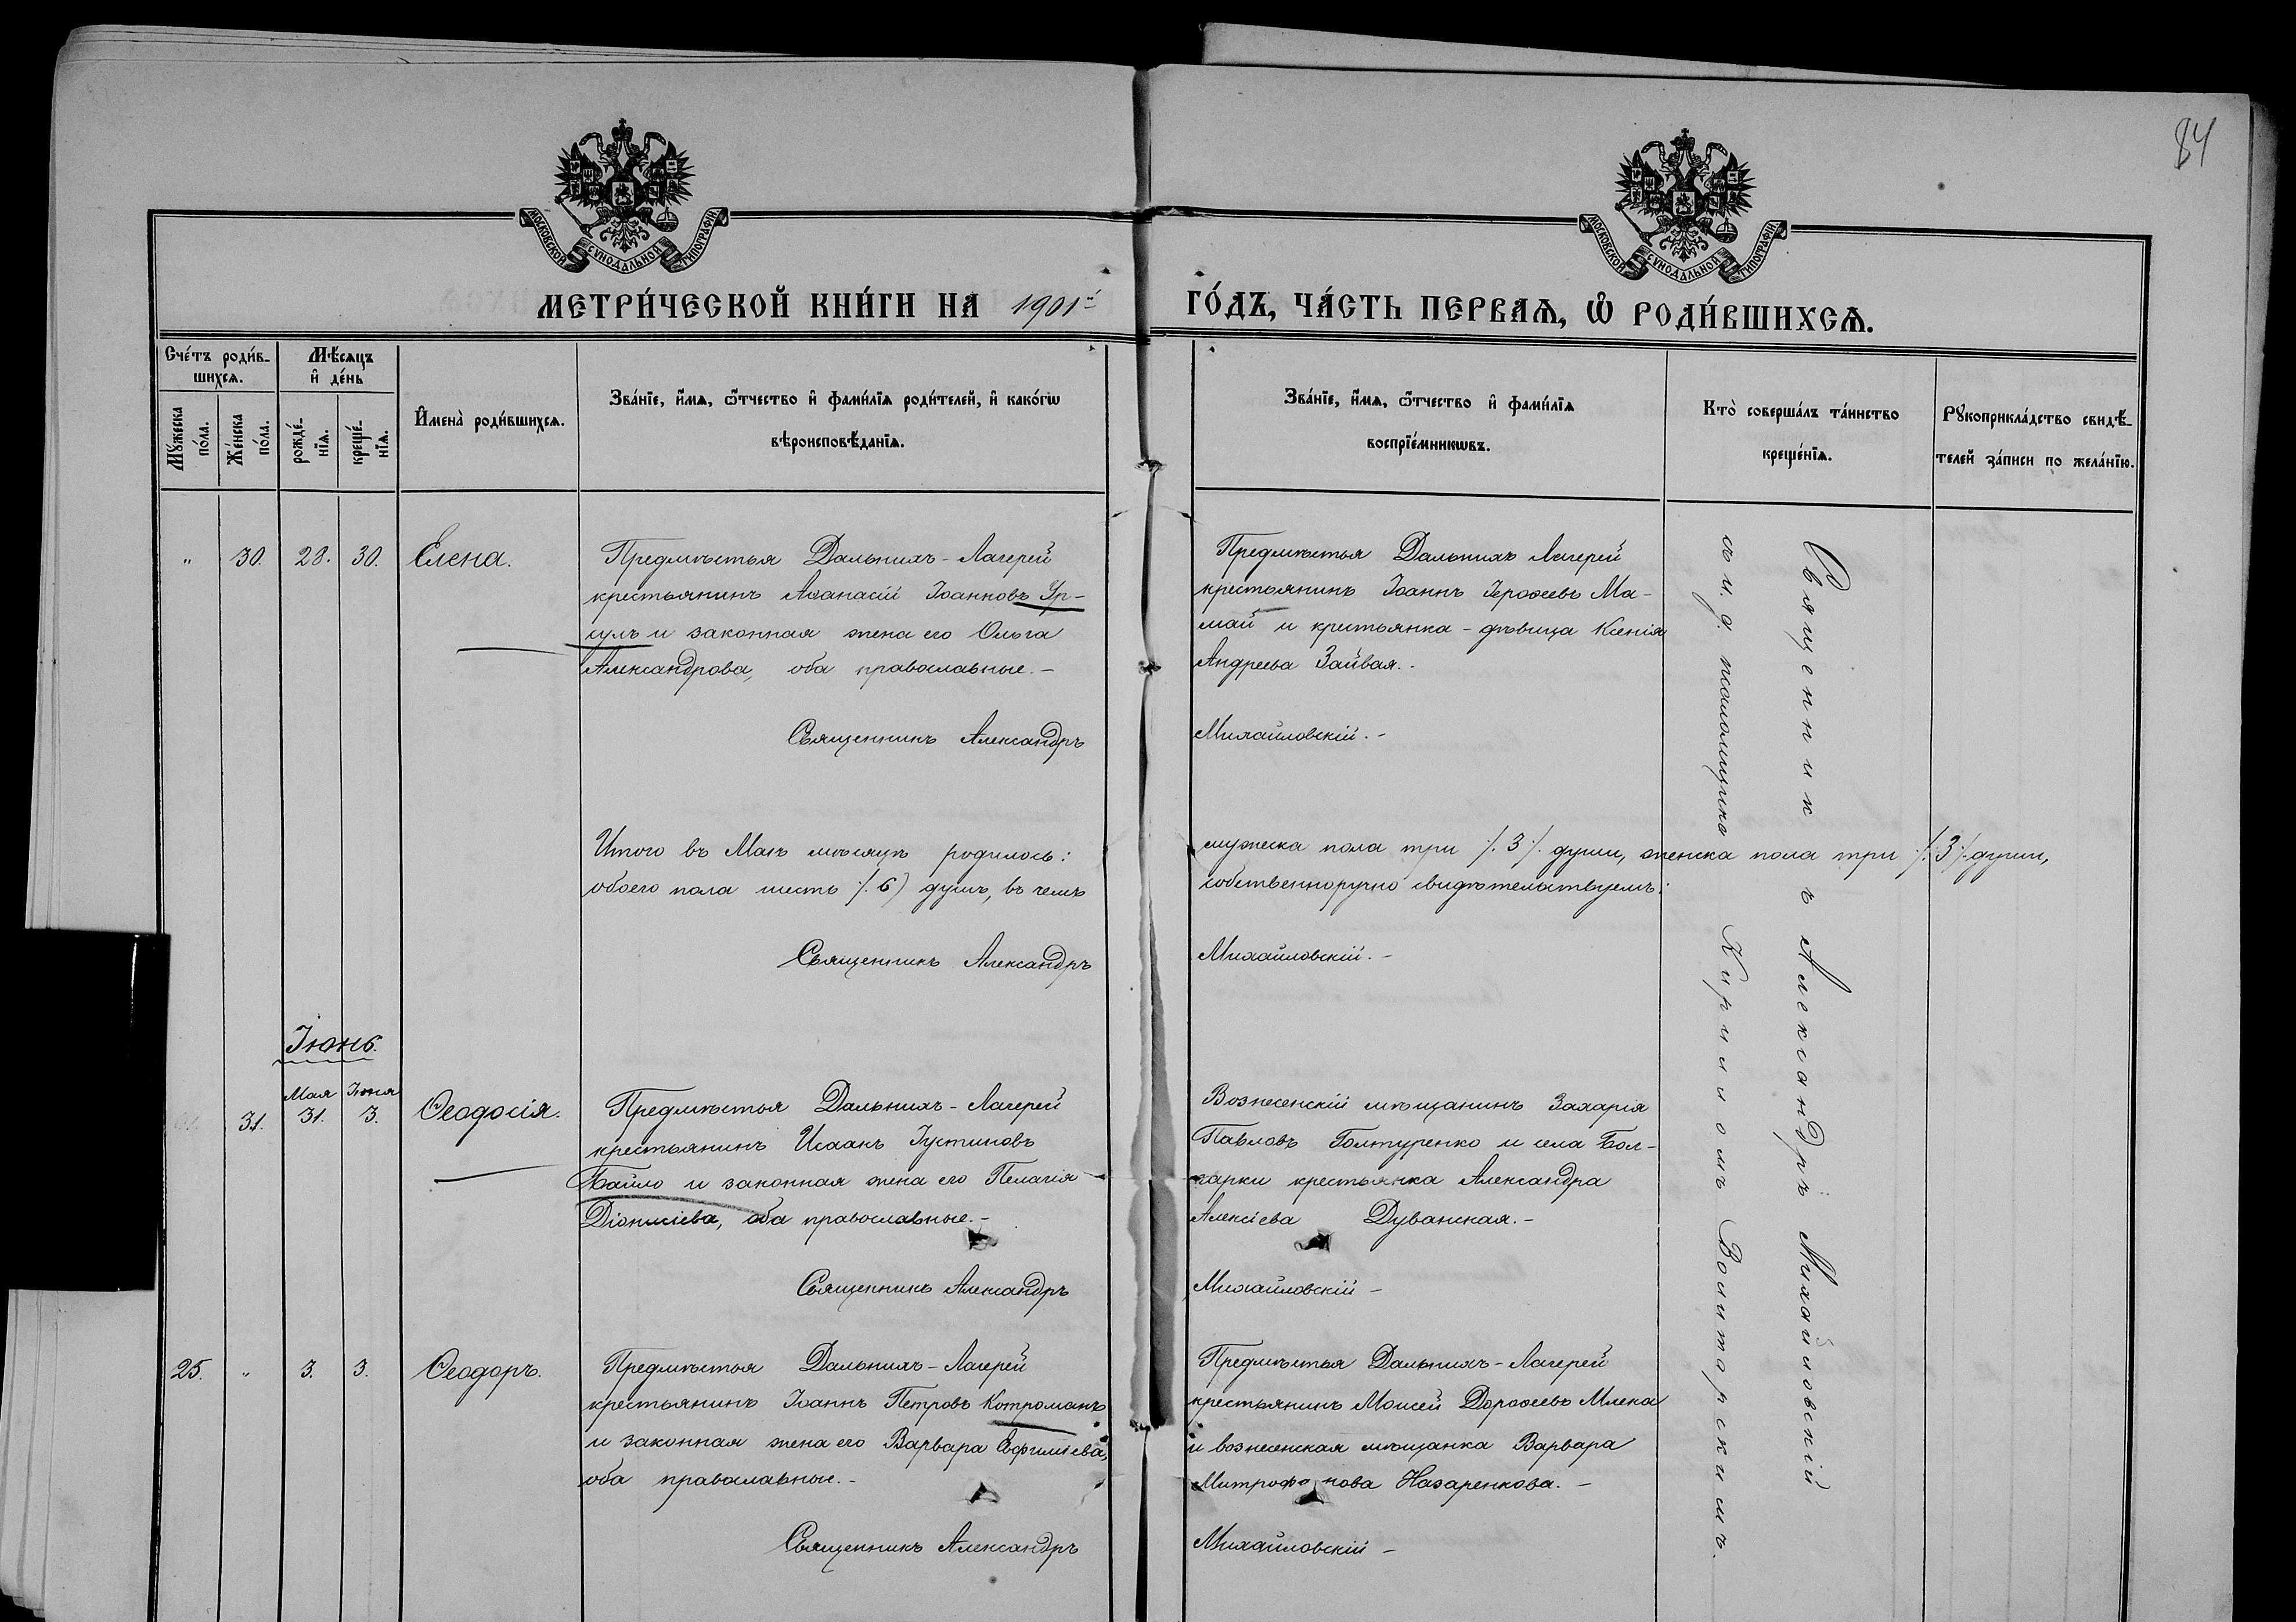 84
МОСКОВСКОЙ СУНОДАЛЬНОЙ ТИПОГРАФІИ
МОСКОВСКОЙ СУНОДАЛЬНОЙ ТИПОГРАФІИ
МЕТРИ́ЧЕСКОЙ КНИ́ГИ НА 1901й ГО́ДЪ, ЧА́СТЬ ПЕРВАѦ, Ѡ҆ РОДИ́ВШИХСѦ.
Сче́тъ роди́в-
шихсѧ.
Мѣ́сѧцъ
и҆ де́нь
Мꙋ́жеска
по́ла.
Же́нска
по́ла.
рожде́-
нїѧ.
креще́-
нїѧ.
И҆мена̀ роди́вшихсѧ.
Зва́нїе, и҆́мѧ, ѻ҆́тчество и҆ фами́лїѧ роди́телей, и҆ како́гѡ
вѣроисповѣ́данїѧ.
Зва́нїе, и҆́мѧ, ѻ҆́тчество и҆ фами́лїѧ
воспрїе́мникѡвъ.
Кто̀ соверша́лъ та́инство
креще́нїѧ.
Рꙋкоприкла́дство свидѣ́-
телей за́писи по жела́нїю.
" 30. 28. 30. Елена.
Предмѣстья Дальнихъ-Лагерей
крестьянинъ Аѳанасій Іоанновъ Ур-
сулъ и законная жена его Ольга
Александрова, оба православные.-
Священникъ Александръ
Предмѣстья Дальнихъ Лагерей
крестьянинъ Іоаннъ Іероѳеевъ Ма-
май и крестьянка-дѣвица Ксенія
Андреева Зайвая.
Михайловскій.-
Итого въ Маѣ мѣсяцѣ родилось:
обоего пола шесть /.6) душъ, въ чемъ
Священникъ Александръ
мужеска пола три /.3/. души, женска пола три /.3/. души,
собственноручно свидѣтельствуемъ:
Михайловскій.-
Іюнь.
Мая Іюня
31. 31. 3. Ѳеодосія.
Предмѣстья Дальнихъ-Лагерей
крестьянинъ Исаакъ Іустиновъ
Байло и законная жена его Пелагія
Діонисіева, оба православные.-
Священникъ Александръ
Вознесенскій мѣщанинъ Захарія
Павловъ Голтуренко и села Бол-
гарки крестьянка Александра
Алексіева Дуванская.-
Михайловскій-
25. " 3. 3. Ѳеодоръ.
Предмѣстья Дальнихъ-Лагерей
крестьянинъ Іоаннъ Петровъ Котроманъ
и законная жена его Варвара Евфиміева,
оба православные.-
Священникъ Александръ
Предмѣстья Дальнихъ-Лагерей
крестьянинъ Моисей Дороѳеевъ Млека
и вознесенская мѣщанка Варвара
Митрофанова Назаренкова.-
Михайловскій-
Священникъ Александръ Михайловскій
съ и. д. псаломщика Кирилломъ Волитарскимъ.